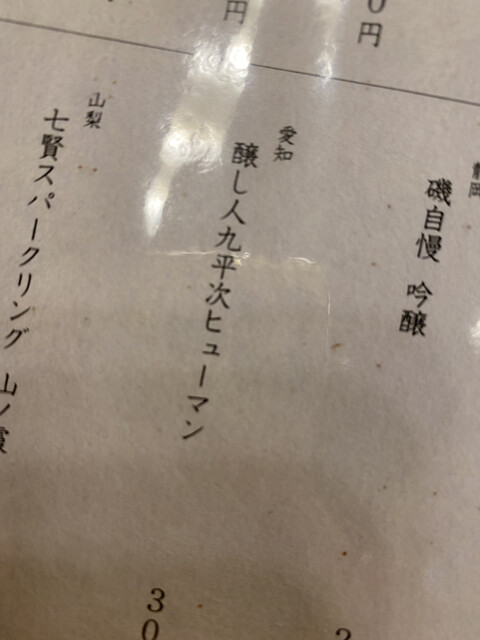 0円
円
静岡
磯自慢 吟醸
2
愛知
醸し人九平次ヒューマン
30
山梨
七賢スパークリング 山ノ霞